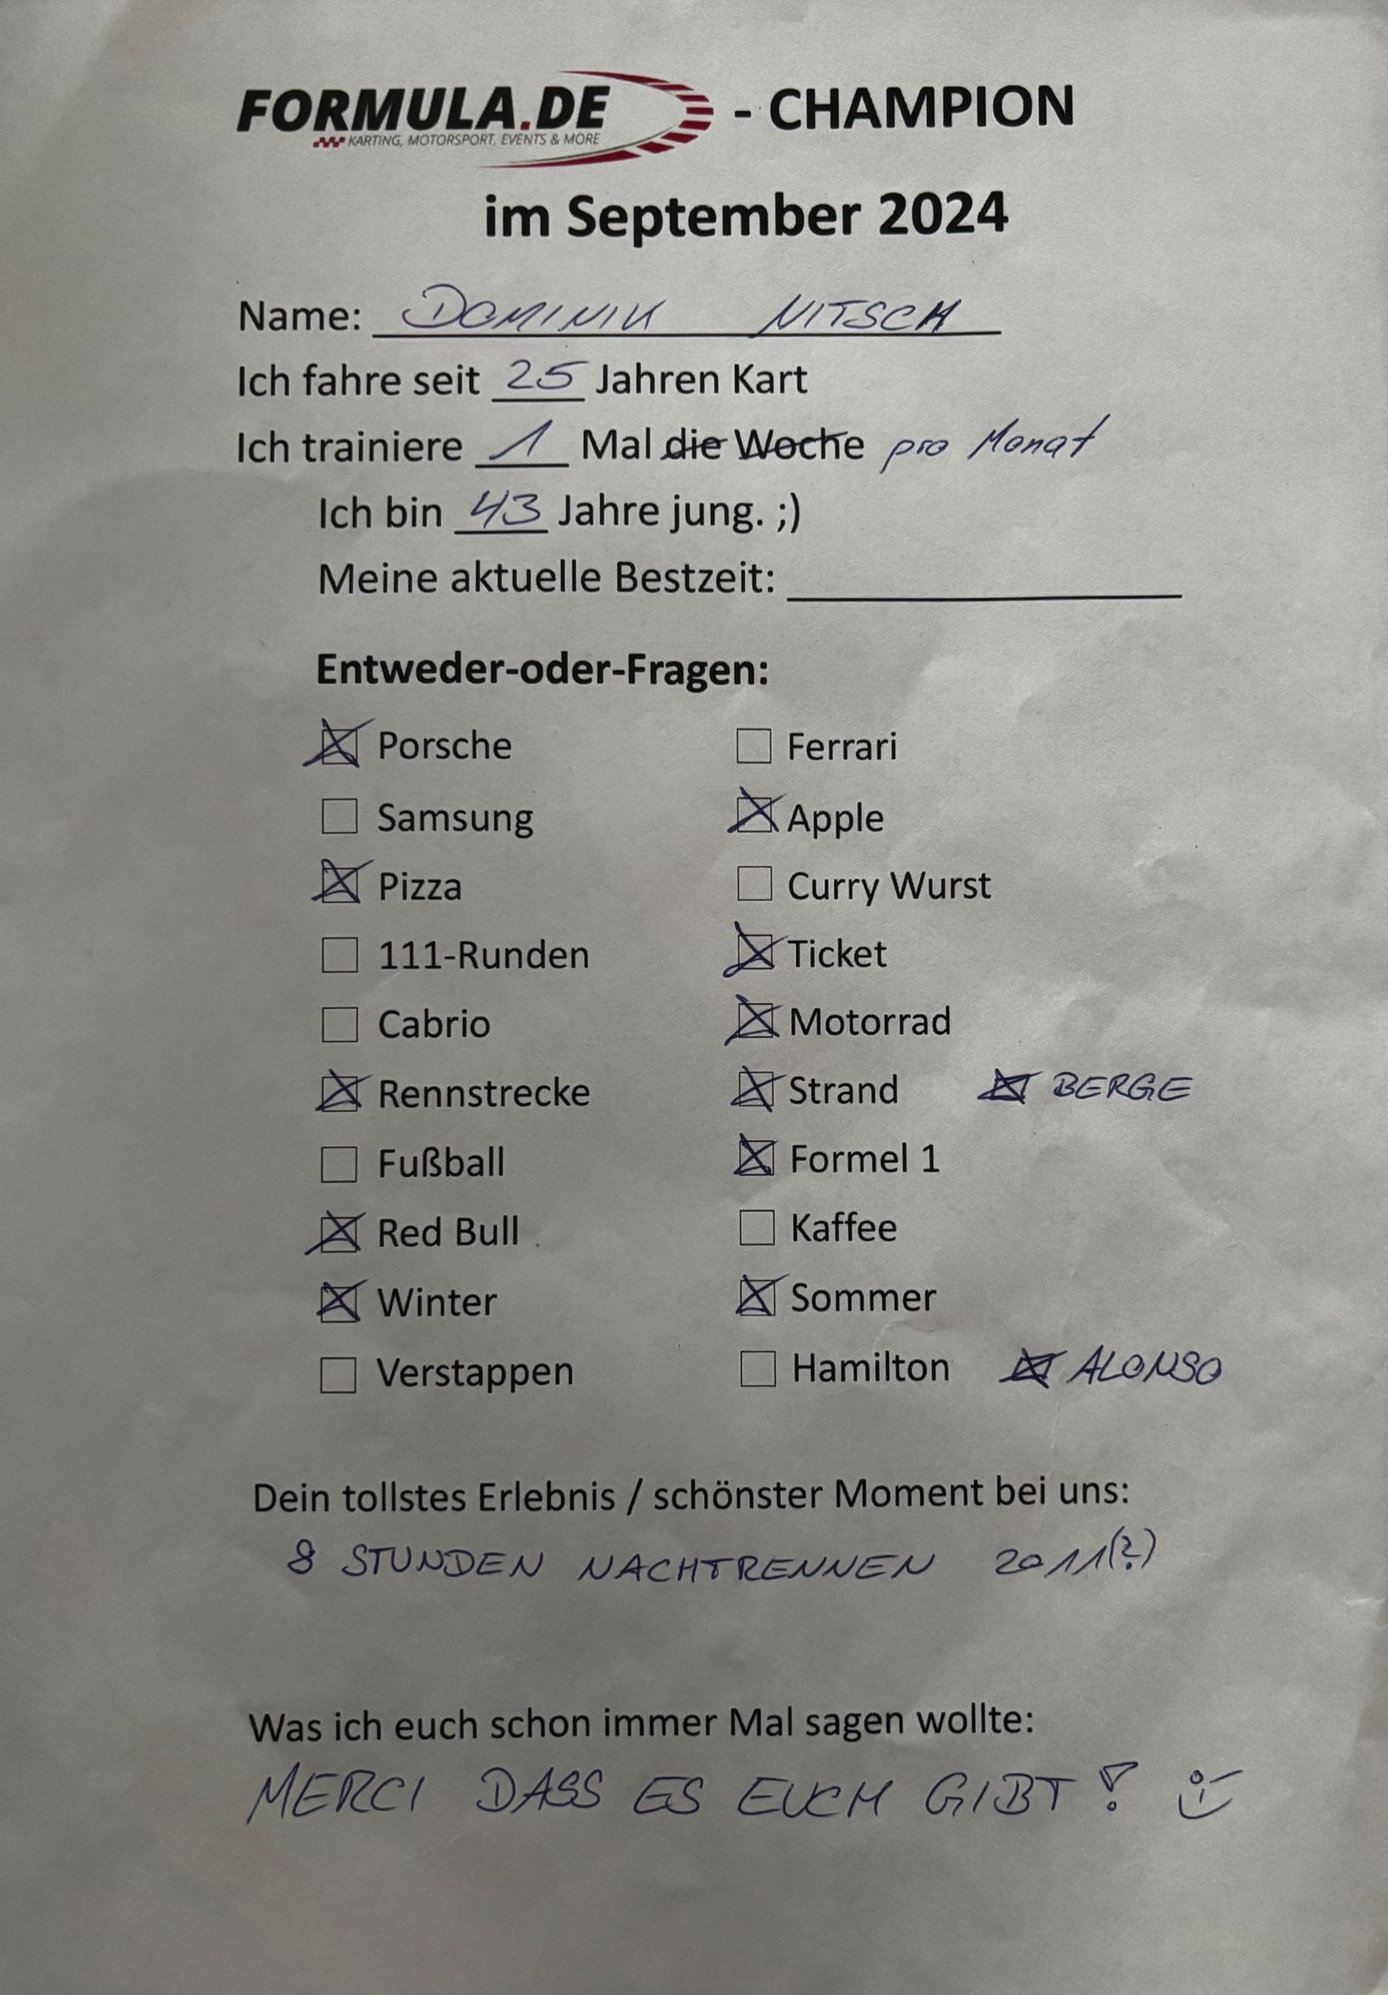 FORMULA.DE - CHAMPION
KARTING, MOTORSPORT, EVENTS & MORE
im September 2024
Name: DOMINIK NITSCH
Ich fahre seit 25 Jahren Kart
Ich trainiere 1 Mal die Woche pro Monat
Ich bin 43 Jahre jung. ;)
Meine aktuelle Bestzeit:
Entweder-oder-Fragen:
☒ Porsche ☐ Ferrari
☐ Samsung ☒ Apple
☒ Pizza ☐ Curry Wurst
☐ 111-Runden ☒ Ticket
☐ Cabrio ☒ Motorrad
☒ Rennstrecke ☒ Strand ☒ BERGE
☐ Fußball ☒ Formel 1
☒ Red Bull ☐ Kaffee
☒ Winter ☒ Sommer
☐ Verstappen ☐ Hamilton ☒ ALONSO
Dein tollstes Erlebnis / schönster Moment bei uns:
8 STUNDEN NACHTRENNEN 2011(?)
Was ich euch schon immer Mal sagen wollte:
MERCI DASS ES EUCH GIBT! :)